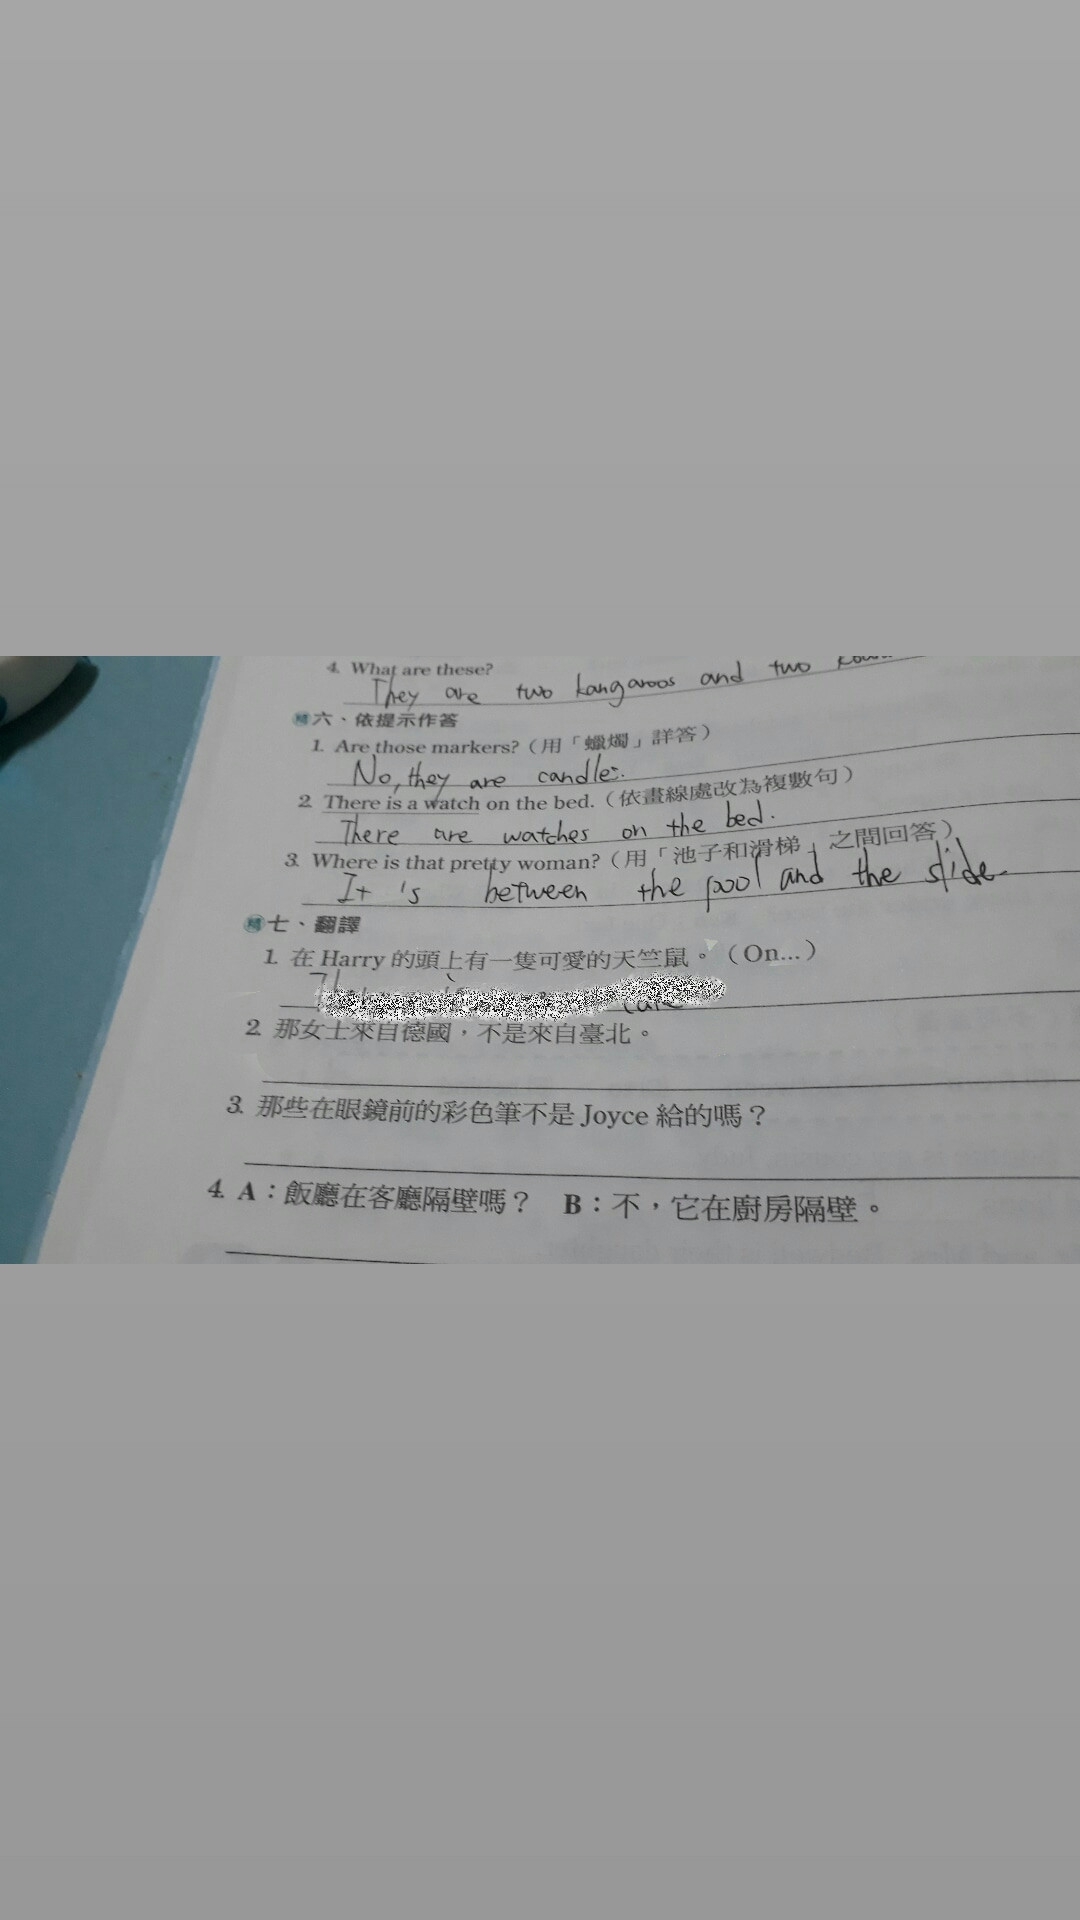 4. What are these?
They are two kangaroos and two
精 六、依提示作答
1. Are those markers?(用「蠟燭」詳答)
No, they are candles.
2. There is a watch on the bed.(依畫線處改為複數句)
There are watches on the bed.
3. Where is that pretty woman?(用「池子和滑梯」之間回答)
It 's between the pool and the slide.
精 七、翻譯
1. 在 Harry 的頭上有一隻可愛的天竺鼠。(On...)
2. 那女士來自德國,不是來自臺北。
3. 那些在眼鏡前的彩色筆不是 Joyce 給的嗎?
4. A:飯廳在客廳隔壁嗎? B:不,它在廚房隔壁。